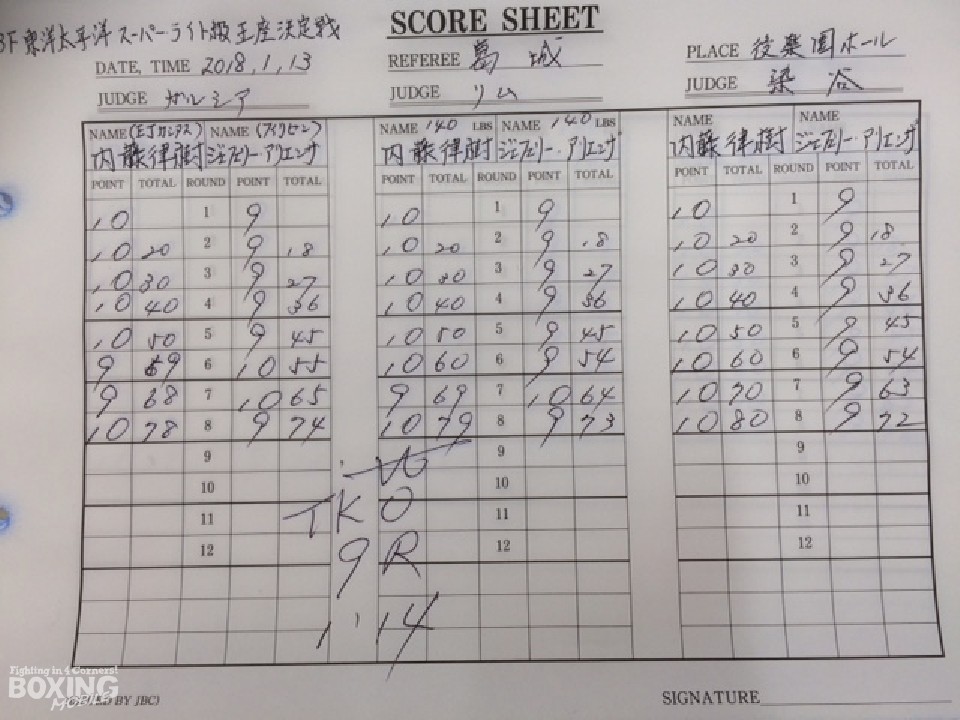 SCORE SHEET
東洋太平洋スーパーライト級王座決定戦
DATE, TIME 2018,1,13
REFEREE 葛城
PLACE 後楽園ホール
JUDGE ガルシア
JUDGE リム
JUDGE 染谷
NAME (E.J.カシアス) NAME NAME 140 LBS NAME 140 LBS NAME NAME
内藤律樹 ジェフリー・アリエンザ 内藤律樹 ジェフリー・アリエンザ 内藤律樹 ジェフリー・アリエンザ
POINT TOTAL ROUND POINT TOTAL POINT TOTAL ROUND POINT TOTAL POINT TOTAL ROUND POINT TOTAL
10 1 9 10 1 9 10 1 9
10 20 2 9 18 10 20 2 9 18 10 20 2 9 18
10 30 3 9 27 10 30 3 9 27 10 30 3 9 27
10 40 4 9 36 10 40 4 9 36 10 40 4 9 36
10 50 5 9 45 10 50 5 9 45 10 50 5 9 45
9 59 6 10 55 10 60 6 9 54 10 60 6 9 54
9 68 7 10 65 9 69 7 10 64 10 70 7 9 63
10 78 8 9 74 10 79 8 9 73 10 80 8 9 72
9 9 9
10 10 10
11 TKO 11 11
12 9R 12 12
1'14
Fighting in 4 Corners!
BOXING
MOBILE
BY JBC)
SIGNATURE